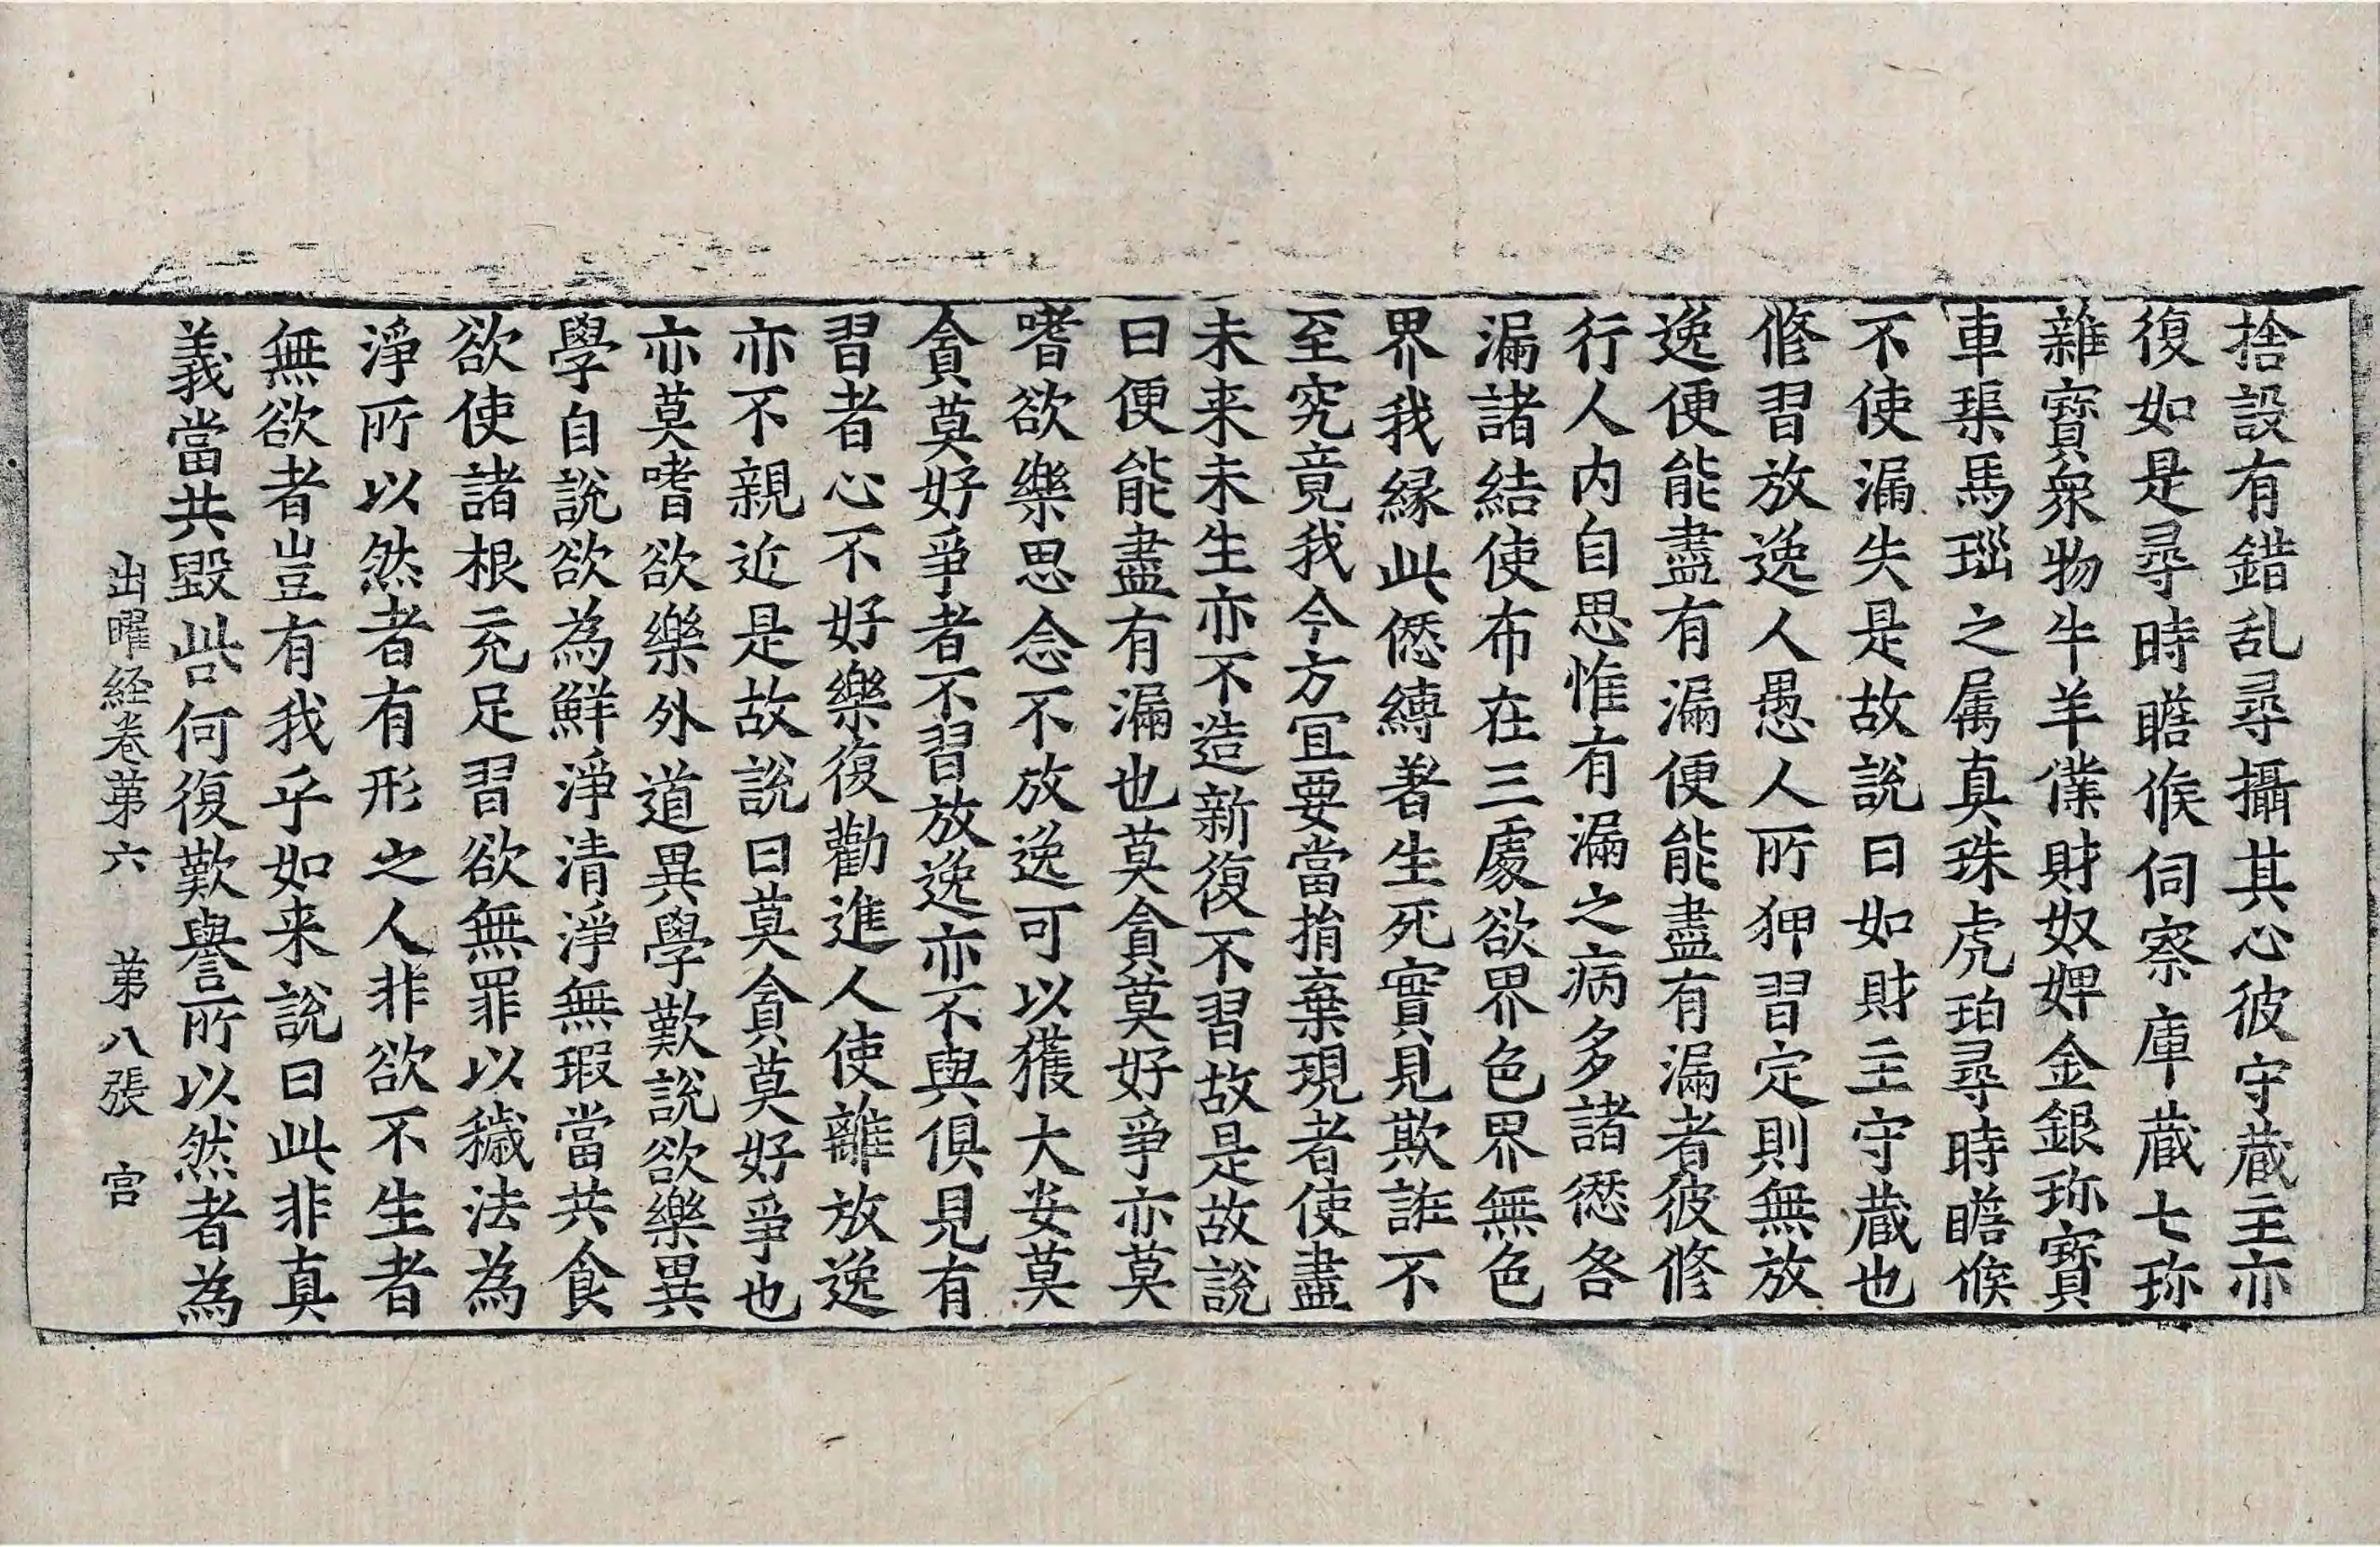 捨設有錯乱尋攝其心彼守蔵主亦
復如是尋時瞻候伺察庫蔵七珎
雜寶衆物牛羊僕財奴婢金銀珎寶
車渠馬瑙之属真珠虎珀尋時瞻候
不使漏失是故說曰如財主守蔵也
修習放逸人愚人所狎習定則無放
逸便能盡有漏便能盡有漏者彼修
行人内自思惟有漏之病多諸愆各
漏諸結使布在三處欲界色界無色
界我縁此㥶縛著生死實見欺誑不
至究竟我今方冝要當捎棄現者使盡
未来未生亦不造新復不習故是故說
曰便能盡有漏也莫貪莫好爭亦莫
嗜欲樂思念不放逸可以獲大安莫
貪莫好爭者不習放逸亦不與俱見有
習者心不好樂復勸進人使離放逸
亦不親近是故說曰莫貪莫好爭也
亦莫嗜欲樂外道異學歎說欲樂異
學自說欲為鮮淨清淨無瑕當共食
欲使諸根充足習欲無罪以穢法為
淨所以然者有形之人非欲不生者
無欲者豈有我乎如来說曰此非真
義當共毀呰何復歎譽所以然者為
出曜経卷第六 第八張 宫